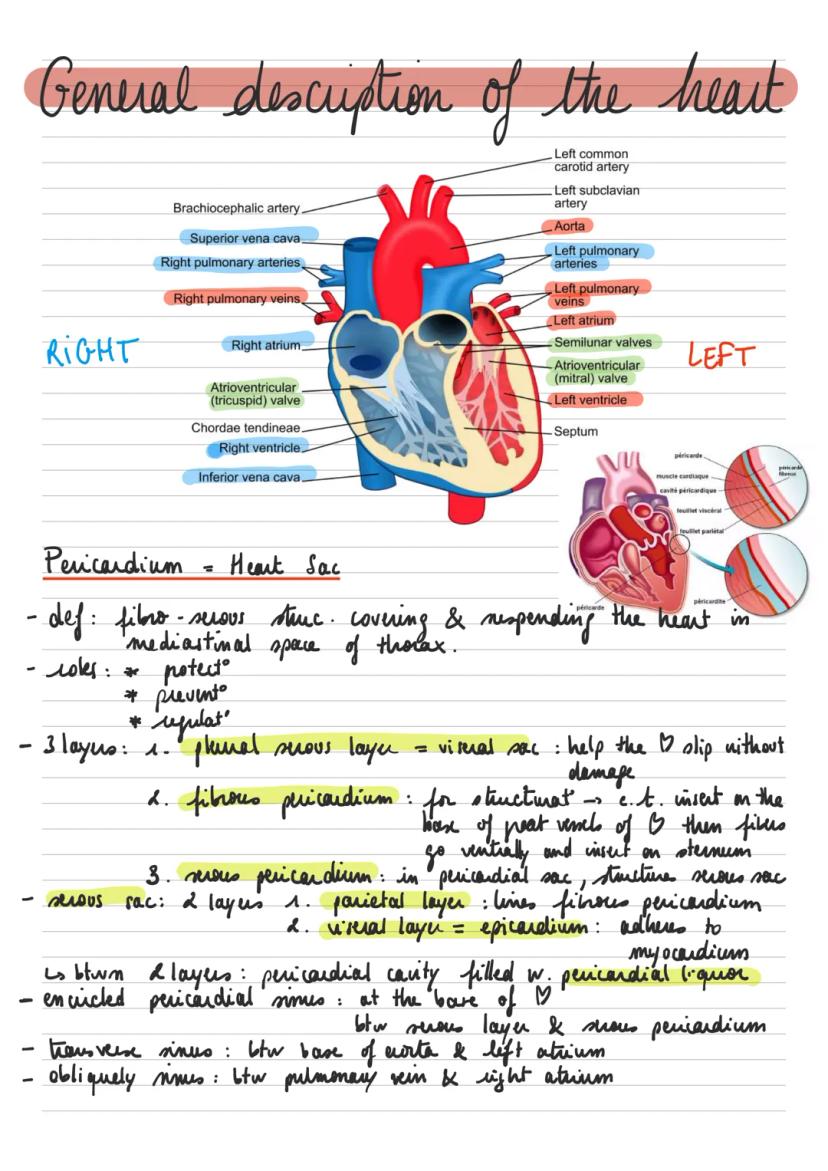 General description of the heart
Left common
carotid artery
Left subclavian
artery
Brachiocephalic artery
Aorta
Superior vena cava
Left pulmonary
arteries
Right pulmonary arteries
Left pulmonary
veins
Right pulmonary veins
Left atrium
RIGHT
Right atrium
Semilunar valves
LEFT
Atrioventricular
(mitral) valve
Atrioventricular
(tricuspid) valve
Left ventricle
Chordae tendineae
Septum
Right ventricle
Inferior vena cava
péricarde
muscle cardiaque
péricarde
fibreux
cavité péricardique
feuillet viscéral
feuillet pariétal
péricarde
péricardite
Pericardium = Heart Sac
- def: fibro-serous struc. covering & suspending the heart in
mediastinal space of thorax.
- roles: * protect°
* prevent°
* regulat°
- 3 layers: 1. pleural serous layer = viseral sac : help the ♡ slip without
damage
2. fibrous pericardium : for structurat° → c.t. insert on the
base of great vessels of ♡ then fibers
go ventrally and insert on sternum
3. serous pericardium : in pericardial sac, structures serous sac
- serous sac: 2 layers 1. parietal layer : lines fibrous pericardium
2. viseral layer = epicardium : adheres to
myocardium
↳ btwn 2 layers : pericardial cavity filled w. pericardial liquor
- encircled pericardial sinus : at the base of ♡
btw serous layer & serous pericardium
- transverse sinus : btw base of aorta & left atrium
- obliquely sinus : btw pulmonary vein & right atrium